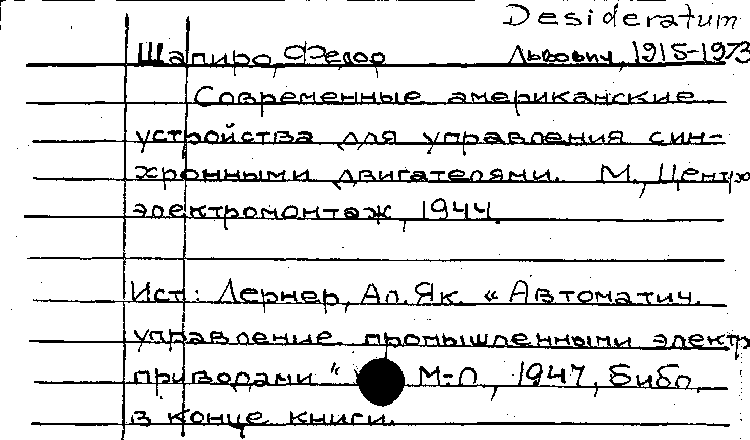 Desideratum
Шапиро, Федор Львович, 1915-1973
Современные американские
устройства для управления син-
хронными двигателями. М., Центр
электромонтаж, 1944.
Ист.: Лернер, Ал. Як. « Автоматич.
управление промышленными электр
приводами " М-Л, 1947, Библ.
в конце книги.